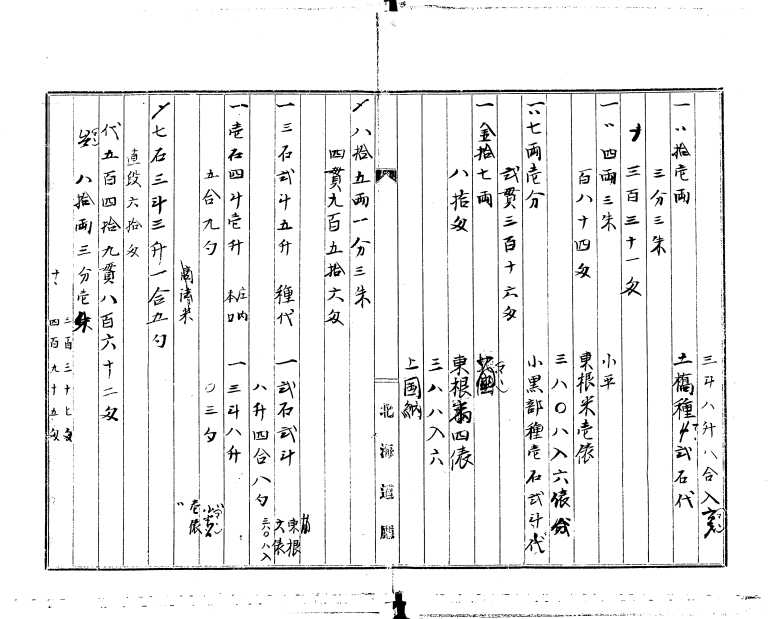 三斗八升八合入
一〃拾壱両 土橋種〆弐石代
三分三朱
三百三十一匁
一〃四両三朱 小平
百八十四匁 東根米壱俵
三八〇八入六俵分
一〃七両壱分 小黒部種壱石弐斗代
弐貫三百十六匁
一金拾七両
八拾匁 東根米四俵
三八八入六
上国納
北海道庁
〆八拾五両一分三朱
四貫九百五拾六匁
一三石弐斗五升 種代 一弐石弐斗
東根六俵
八升四合八勺 三六〇八入
一壱石四斗壱升 庄内本口 一三斗八升
五合九勺 〇三勺
壱俵
〆七石三斗三升一合五勺
直段六拾匁
代五百四拾九貫八百六十二匁
八拾両三分壱朱
二百三十七匁
四百九十五匁